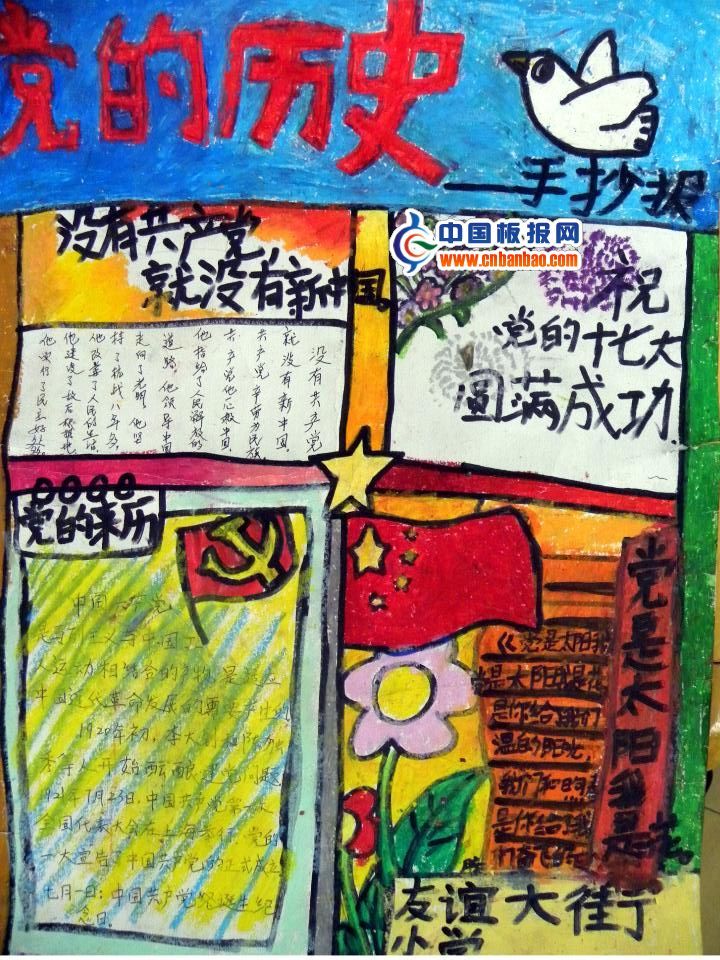 党的历史
——手抄报
中国板报网
www.cnbanbao.com
没有共产党,
就没有新中国。
祝
党的十七大
圆满成功.
没有共产党
就没有新中国。
共产党辛劳为民族
共产党他一心救中国
他指给了人民解放的
道路 他领导中国
走向了光明 他坚
持了抗战八年多
他改善了人民的生活
他建设了敌后根据地
他实行了民主好处多
党的来历
中国共产党
是马 主义与中国工
人运动相结合的产物,是
中国近代革命发展的
1920年初,李大
秀等人开始酝酿建党问题
1921年7月23日,中国共产党第一次
全国代表大会在上海举行,党的
一大宣告了中国共产党的正式成立
七月一日:中国共产党 诞生纪
念日.
党是太阳我是花
《党是太阳我
党是太阳我是花
是你给我们
温的阳光,
我们和
是你给我
们
友谊大街
小学